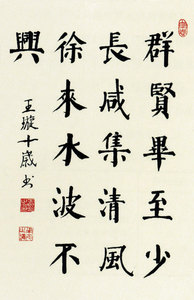 群賢畢至少
長咸集清風
徐來水波不
興
王璇十歲书